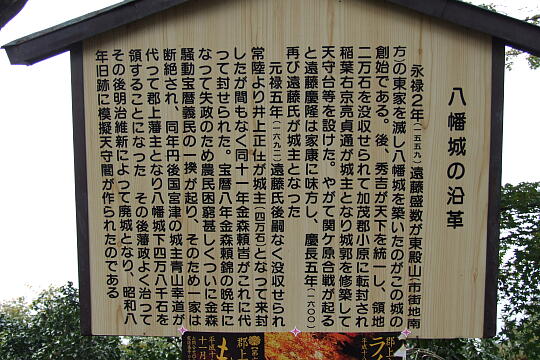 八幡城の沿革
永禄２年(一五五九)遠藤盛数が東殿山(市街地南
方)の東家を滅し八幡城を築いたのがこの城の
創始である。後、秀吉が天下を統一し、領地
二万石を没収せられて加茂郡小原に転封され
稲葉右京亮貞通が城主となり城郭を修築して
天守台等を設けた。やがて関ケ原合戦が起る
と遠藤慶隆は家康に味方し、慶長五年(一六〇〇)
再び遠藤氏が城主となった
元禄五年(一六九二)遠藤氏後嗣なく没収せられ
常陸より井上正任が城主(四万石)となつて来封
したが間もなく同十一年金森頼旹がこれに代
つて封せられた。宝暦八年金森頼錦の晩年に
なつて失政のため農民困窮甚しくついに金森
騒動宝暦義民の一揆が起り、そのため一家は
断絶され、同年丹後国宮津の城主青山幸道が
代つて郡上藩主となり八幡城下四万八千石を
領することになった その後藩政よく治って
その後明治維新によって廃城となり、昭和八
年旧跡に模擬天守閣が作られたのである
郡上
平成十
十一月